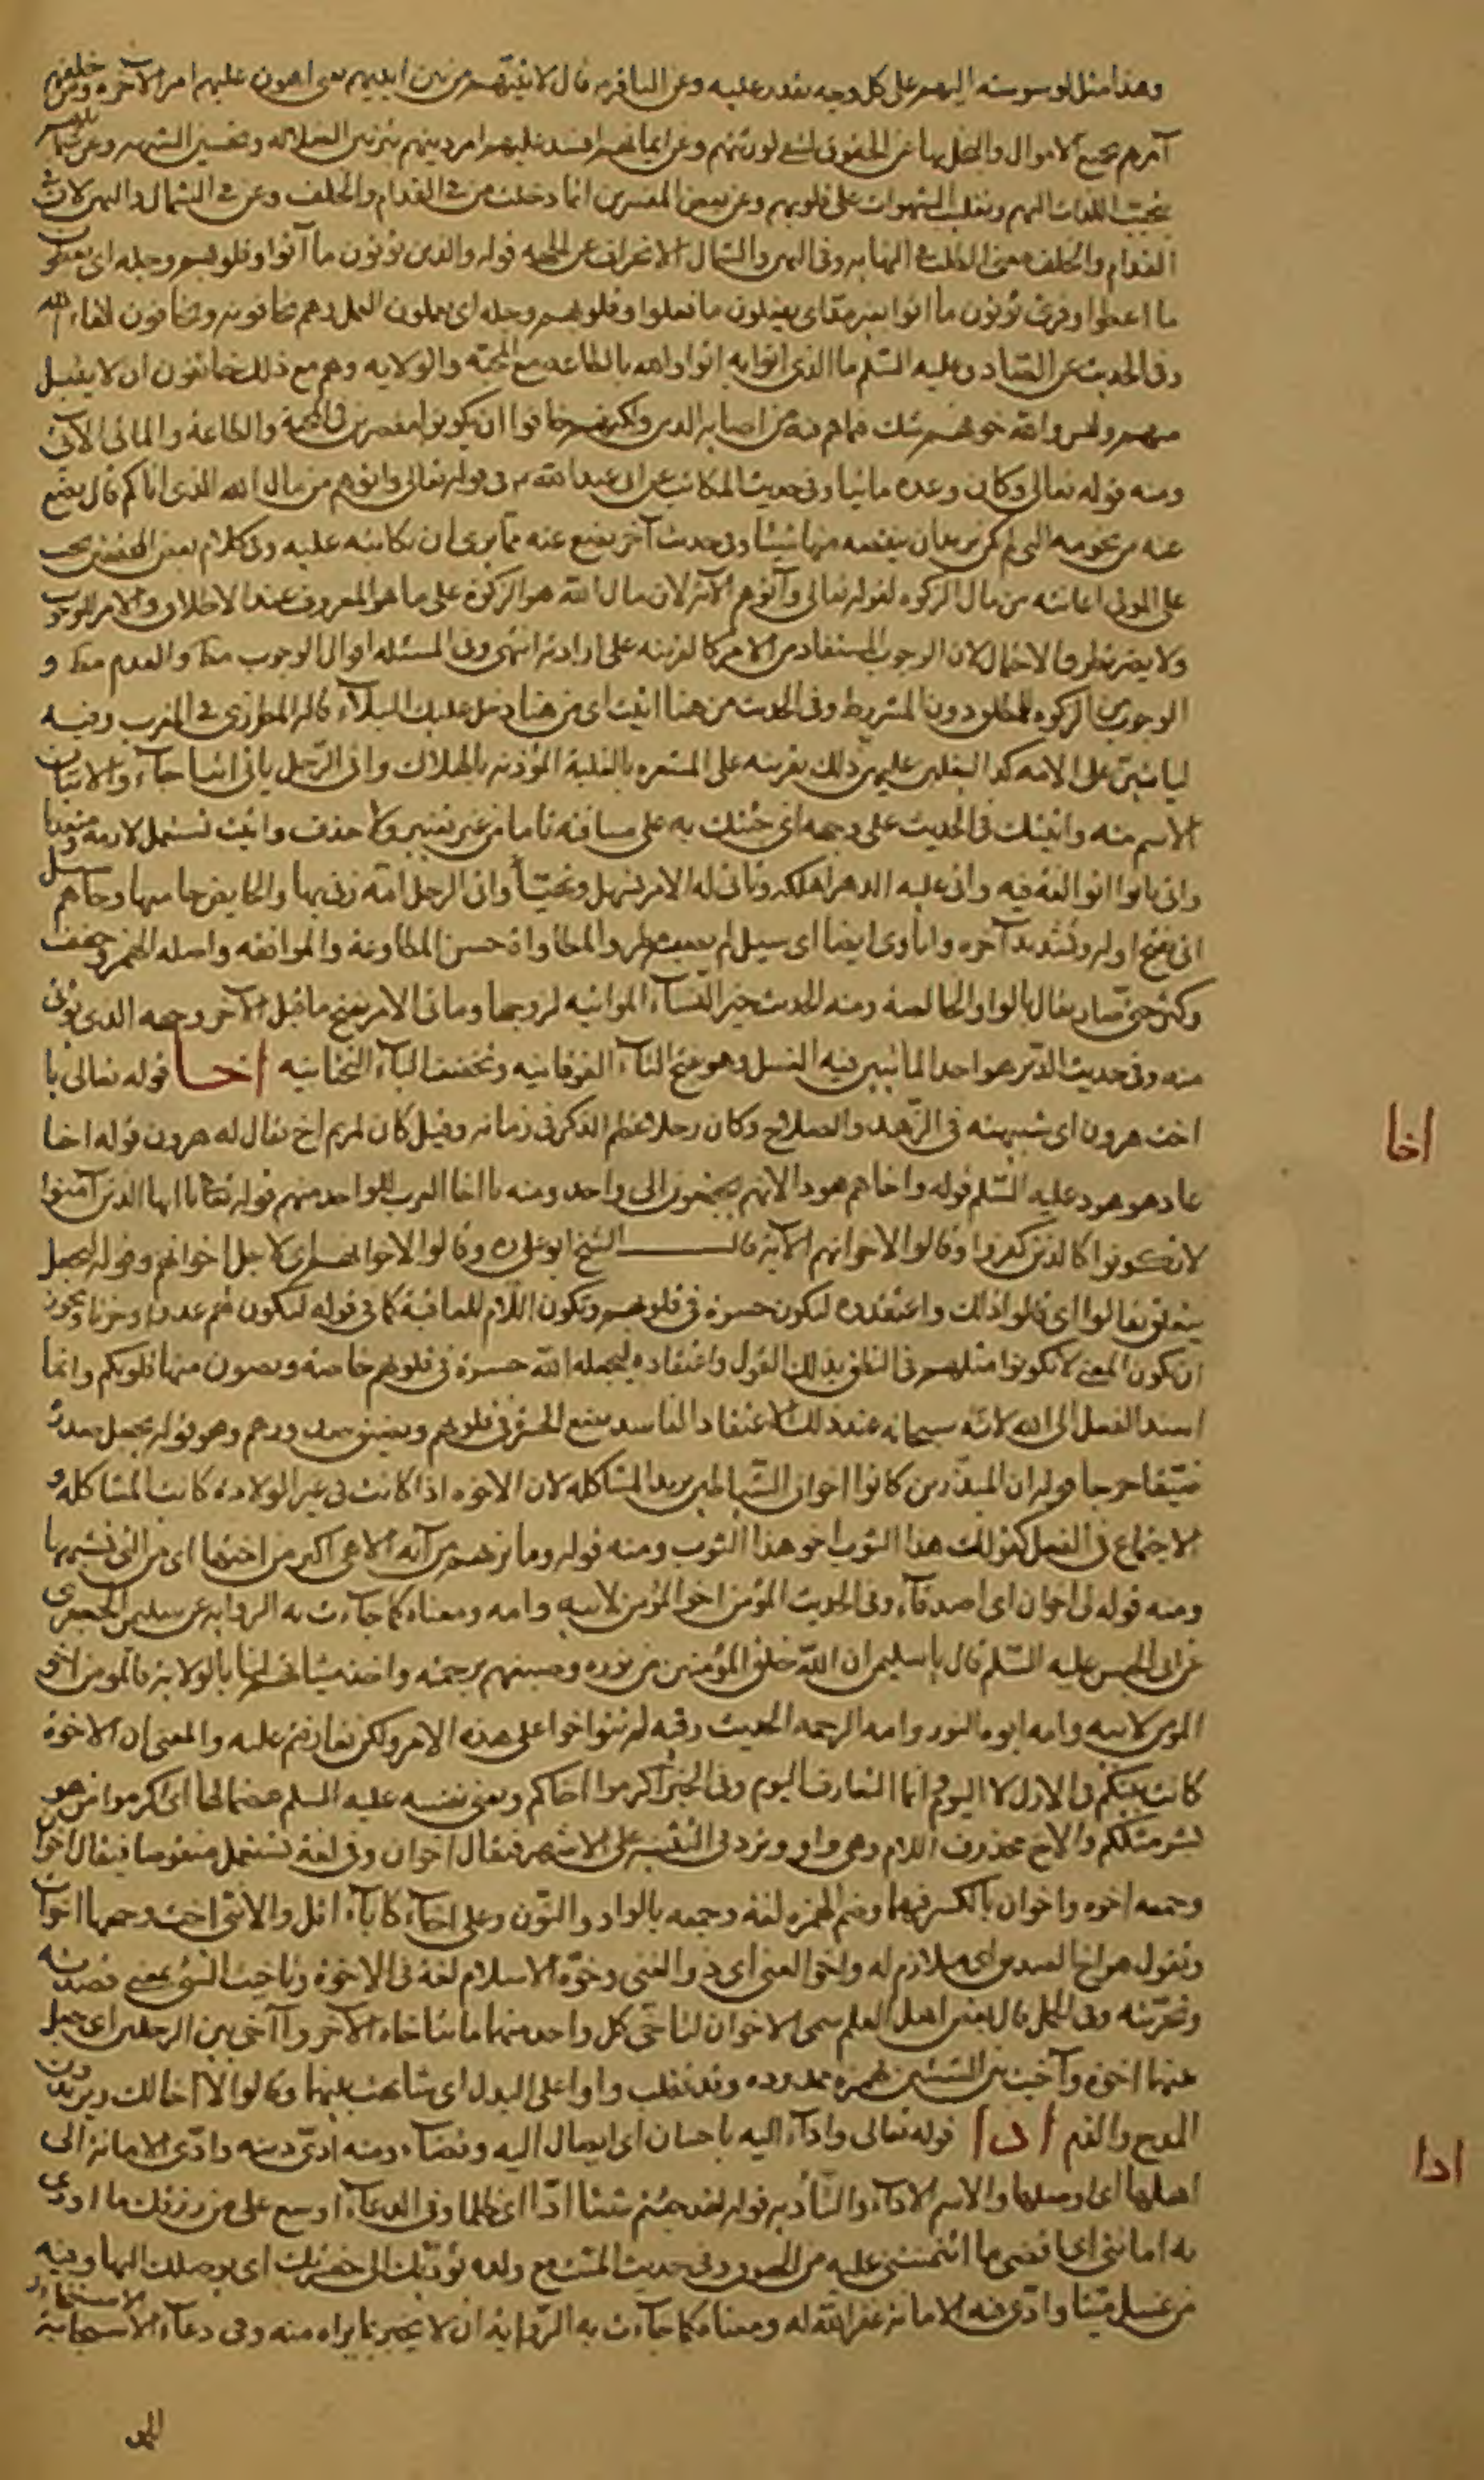 وهذا مثل لوسوسته اليهم على كل وجه يقدر عليه وعن الباقر ع قال لآتينهم من بين ايديهم يعني اهون عليهم امر الآخرة ومن خلفهم
آمرهم بجمع الاموال والبخل بها عن الحقوق لتبقى لورثتهم وعن ايمانهم افسد عليهم امر دينهم بتزيين الضلالة وتحسين الشبهة وعن شمائلهم
بتحبيب اللذات اليهم وتغليب الشهوات على قلوبهم وعن بعض المفسرين انما دخلت من في القدام والخلف وعن في الشمال واليمين لان في
القدام والخلف معنى الطلب النهاية وفي اليمين والشمال الانحراف عن الجهة قوله والذين يؤتون ما آتوا وقلوبهم وجلة اى يعطون
ما اعطوا وقرئ يؤتون ما اتوا بغير مد اى يفعلون ما فعلوا وقلوبهم وجلة اى يعملون العمل وهم يخافونه ويخافون لقاء الله
وفي الحديث عن الصادق عليه السلم ما الذى اتوا به اتوا والله بالطاعة مع المحبة والولاية وهم مع ذلك خائفون ان لا يقبل
منهم وليس والله خوفهم شك فيما هم فيه من اصابة الدين ولكنهم خافوا ان يكونوا مقصرين في المحبة والطاعة والماتي الآتي
ومنه قوله تعالى وكان وعده ماتيا وفي حديث المكاتب عن ابى عبد الله ع في قوله تعالى وآتوهم من مال الله الذى اتاكم قال يضع
عنه من نجومه التى لم يكن يريد ان ينقصه منها شيئا وفي حديث آخر يضع عنه مما يرى ان يكاتبه عليه وفي كلام بعض المحققين يجب
على المولى اعانته من مال الزكوة لقوله تعالى وآتوهم الآية لان مال الله هو الزكوة على ما هو المعروف عند الاطلاق والامر للوجوب
ولا يضر تطرق الاحتمال لان الوجوب المستفاد من الامر كالقرينة على ارادته انتهى وفي المسئلة اقوال الوجوب مط والعدم مط و
الوجوب من الزكوة للمطلق دون المشروط وفي الحديث من هنا اتيت اى من هنا دخل عليك البلاء قاله المطرزى في المغرب وفيه
لياتين على الامة كذا بتغليب عليهم ذلك بقرينة على المشعرة بالغلبة المؤذنة بالهلاك واتى الرجل ياتي اتيا جاء والاتيان
الاسم منه واتيتك في الحديث على وجهه اى جئتك به على مساقه تاما من غير تغيير ولا حذف واتيت تستعمل لازما ومتعديا
واتى ياتوا اتوا لغة فيه واتى عليه الدهر اهلكه وتاتى له الامر تسهل وتهيا واتى الرجل امة زنى بها والحايض جامعها وجاءهم سيل
اتي بفتح اوله وتشديد آخره واتاوى ايضا اى سيل لم يصبهم مطره والمطاواة حسن المطاوعة والموافقة واصله الهمز وخفف
وكثر حتى صار يقال بالواو الخالصة ومنه الحديث خير النساء المواتية لزوجها وماتى الامر بفتح ما قبل الآخر وجهه الذى يؤتى
منه وفي حديث الدبر هو احد الماتيين فيه الغسل وهو بفتح التاء الفوقانية وتخفيف الياء التحتانية اخا قوله تعالى يا
اخت هرون اى شبيهته في الزهد والصلاح وكان رجلا عظيم الذكر في زمانه وقيل كان لمريم اخ يقال له هرون قوله اخا
عاد هو هود عليه السلم قوله واخاهم هودا لانهم يجتمعون الى واحد ومنه يا اخا العرب للواحد منهم قوله تعالى يا ايها الذين آمنوا
لا تكونوا كالذين كفروا وقالوا لاخوانهم الآية قال الشيخ ابو على ره وقالوا لاخوانهم اى لاجل اخوانهم وقوله ليجعل
يتعلق بقالوا اى قالوا ذلك واعتقدوه ليكون حسرة في قلوبهم وتكون اللام للعاقبة كما في قوله ليكون لهم عدوا وحزنا ويجوز
ان يكون المعنى لا تكونوا مثلهم في النطق بذلك القول واعتقاده ليجعله الله حسرة في قلوبهم خاصة ويصون منها قلوبكم وانما
اسند الفعل الى الله لانه سبحانه عند ذلك الاعتقاد الفاسد يضع الحسرة في قلوبهم ويضيق صدورهم وهو قوله يجعل صدره
ضيقا حرجا قوله ان المبذرين كانوا اخوان الشياطين يريد المشاكلة لان الاخوة اذا كانت في غير الولادة كانت المشاكلة و
الاجتماع في الفعل كقولك هذا الثوب اخو هذا الثوب ومنه قوله وما نريهم من آية الا هى اكبر من اختها اى من التى تشبهها
ومنه قوله لى اخوان اى اصدقاء وفي الحديث المؤمن اخو المؤمن لابيه وامه ومعناه كما جاءت به الرواية عن سليمن الجعفرى
عن ابى الحسن عليه السلم قال يا سليمن ان الله خلق المؤمنين من نوره وصبغهم برحمته واخذ ميثاقهم لنا بالولاية فالمؤمن اخو
المؤمن لابيه وامه ابوه النور وامه الرحمة الحديث وفيه لم تتواخوا على هذا الامر ولكن تعارفتم عليه والمعنى ان الاخوة
كانت بينكم في الازل لا اليوم انما التعارف اليوم وفي الخبر اكرموا اخاكم ويعنى نفسه عليه السلم هضما لها اى اكرموا من هو
بشر مثلكم والاخ محذوف اللام وهى واو وترد في التثنية على الاشهر فيقال اخوان وفي لغة تستعمل منقوصا فيقال اخوان
وجمعه اخوة واخوان بالكسر فيهما وضم الهمزة لغة وجمعه بالواو والنون وعلى اخآء كاباء اقل والانثى اخت وجمعها اخوات
وتقول هو اخ الصدق اى ملازم له واخو الغنى اى ذو الغنى وخوة الاسلام لغة في الاخوة وتاخيت الشئ بمعنى قصدته
وتحريته وفي المجمل قال بعض اهل العلم سمى الاخوان لتاخى كل واحد منهما ما يتاخاه الآخر وآخى بين الرجلين اى جعل
بينهما اخوة وآخيت بين الشيئين بهمزة ممدودة وقد تقلب واوا على البدل اى شابهت بينهما وقالوا لا اخا لك ويريدون
المدح والذم ادا قوله تعالى واداء اليه باحسان اى ايصال اليه وقضاء ومنه ادى دينه وادى الامانة الى
اهلها اى اوصلها والاسم الاداء والتأدية قوله لقد جئتم شيئا ادا اى عظيما وفي الدعاء اوسع على من رزقك ما اودى
به امانتى اى اقضى ما ائتمنتنى عليه من الحقوق وفي حديث المتمتع ولده تؤديك الى حفرتك اى يوصلك اليها وفيه
من غسل ميتا وادى فيه الامانة غفر الله له ومعناه كما جاءت به الرواية ان لا يخبر بما يراه منه وفي دعاء الاستنجاء
اخا
ادا